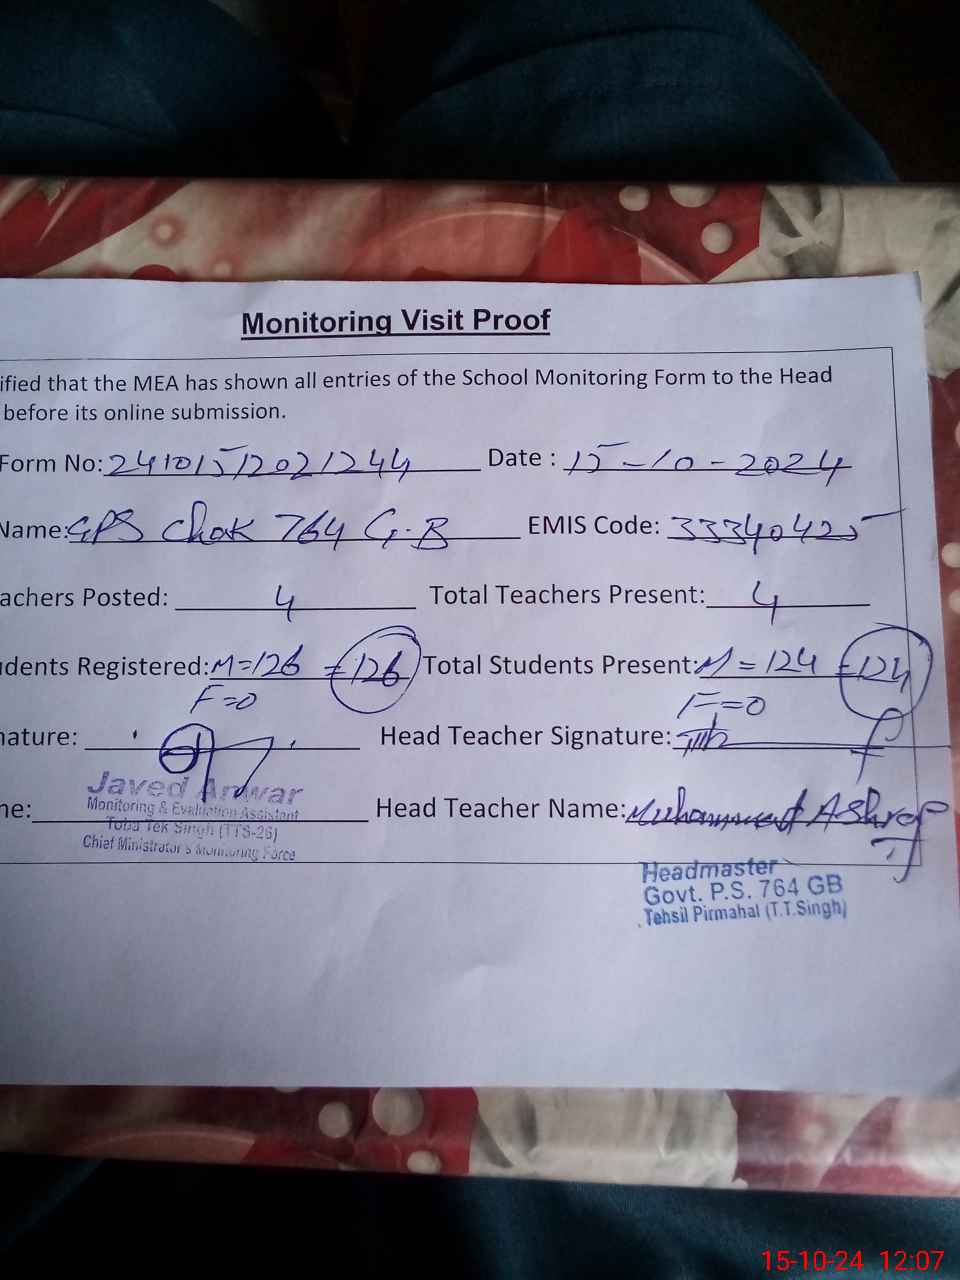 Monitoring Visit Proof
ified that the MEA has shown all entries of the School Monitoring Form to the Head
before its online submission.
Form No: 24101512021244 Date : 15-10-2024
Name: GPS Chak 764 G.B EMIS Code: 33340425
achers Posted: 4 Total Teachers Present: 4
dents Registered: M=126 =126 Total Students Present: M=124 =124
F=0 F=0
nature: Head Teacher Signature:
Javed Anwar
Monitoring & Evaluation Assistant
ne: Head Teacher Name: Muhammad Ashraf
Toba Tek Singh (TTS-26)
Chief Ministrator's Monitoring Force
Headmaster
Govt. P.S. 764 GB
Tehsil Pirmahal (T.T.Singh)
15-10-24 12:07